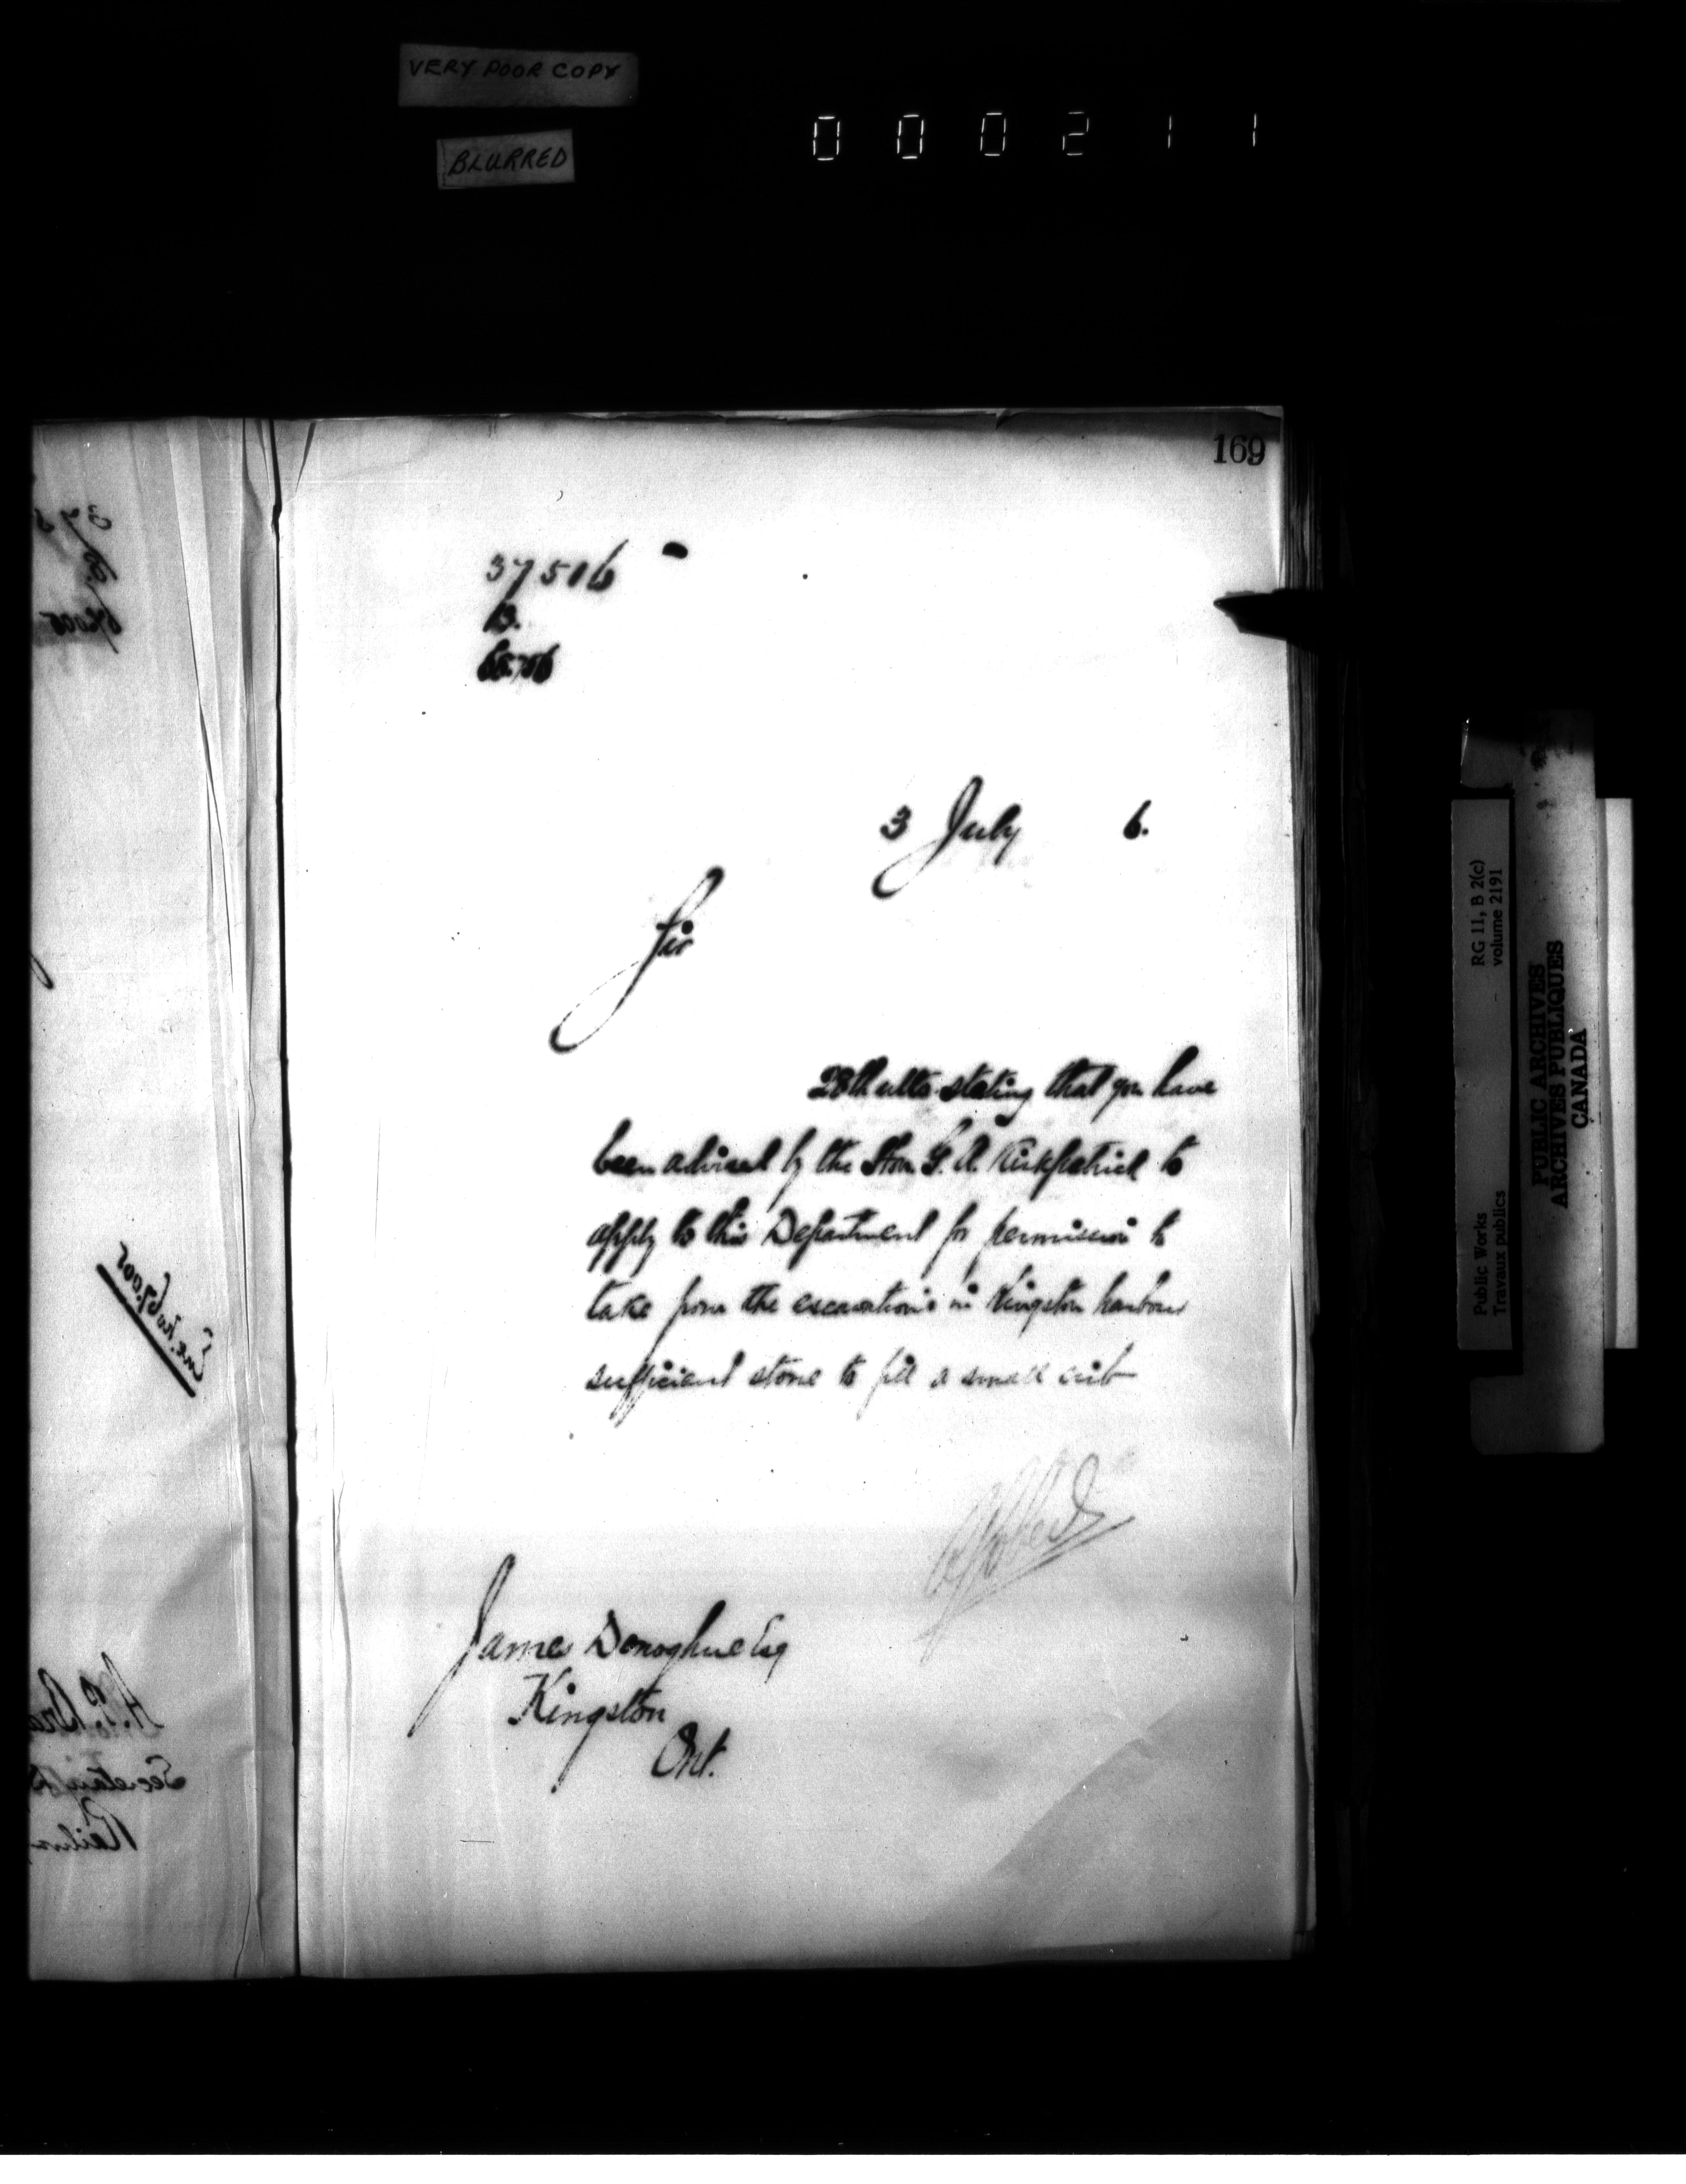 VERY POOR COPY
BLURRED
000211
169
37506
B.
3 July 6.
Sir
28th ulto stating that you have
been advised by the Hon. G. A. Kirkpatrick to
apply to this Department for permission to
take from the excavations in Kingston harbour
sufficient stone to fill a small crib
James Donoghue Esq
Kingston
Ont.
Enc. No 67.005
A. P. Bra
Secretary
Railw
Public Works
Travaux publics
RG 11, B 2(c)
volume 2191
PUBLIC ARCHIVES
ARCHIVES PUBLIQUES
CANADA